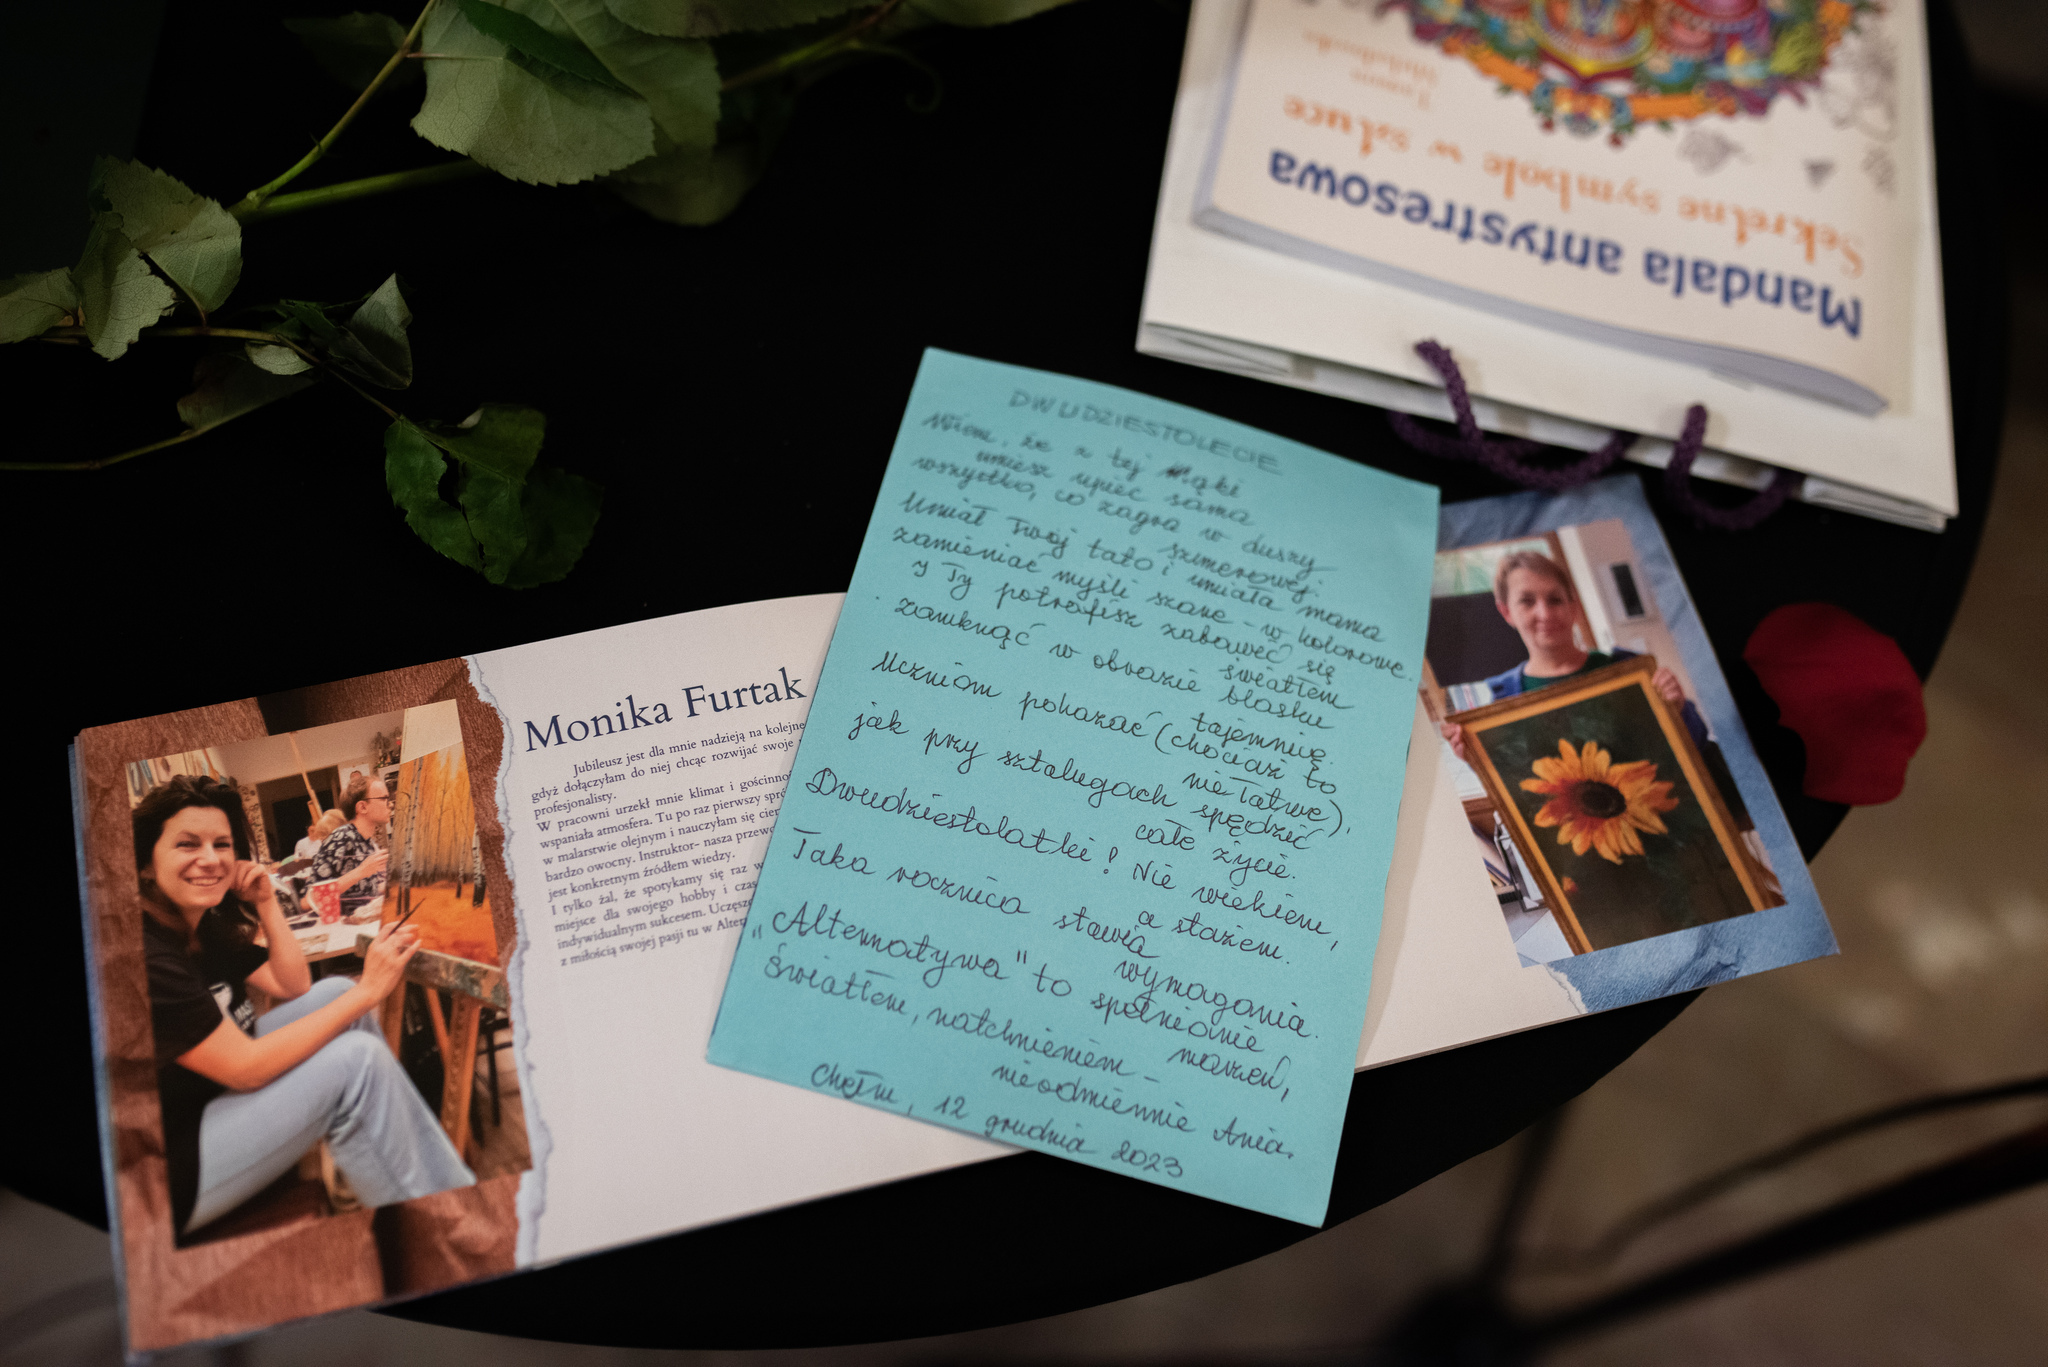 Mandala antystresowa
Sekretne symbole w sztuce
DWUDZIESTOLECIE
Wiem, że z tej mąki
umiesz upiec sama
wszystko, co zagra w duszy
Umiał Twój tato i umiała mama
zamieniać myśli szare - w kolorowe.
Y Ty potrafisz zabawić się
światłem
zamknąć w obrazie blasku
tajemnicę.
Uczniom pokazać (chociaż to
nie łatwe),
jak przy sztalugach spędzić
całe życie.
Dwudziestolatki! Nie wiekiem,
a stażem.
Taka rocznica stawia
wymagania.
„Alternatywa" to spełnianie
marzeń,
światłem, natchnieniem -
nieodmiennie Ania.
Chełm, 12 grudnia 2023
Monika Furtak
Jubileusz jest dla mnie nadzieją na kolejne
gdyż dołączyłam do niej chcąc rozwijać swoje
profesjonalisty.
W pracowni urzekł mnie klimat i
wspaniała atmosfera. Tu po raz pierwszy
w malarstwie olejnym i nauczyłam się
bardzo owocny. Instruktor- nasza
jest konkretnym źródłem wiedzy.
I tylko żal, że spotykamy się raz w
miejsce dla swojego hobby i
indywidualnym sukcesem.
z miłością swojej pasji tu w